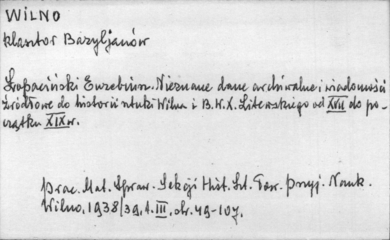 WILNO
klasztor Bazyljanów
Łopaciński Euzebiusz. Nieznane dane archiwalne i wiadomości
źródłowe do historii sztuki Wilna i B.W.X. Litewskiego od XVII do po-
czątku XIX w.
Prac. Mat. Spraw. Sekcji Hist. Szt. Tow. Przyj. Nauk.
Wilno, 1938/39, t. III, str. 49-107.